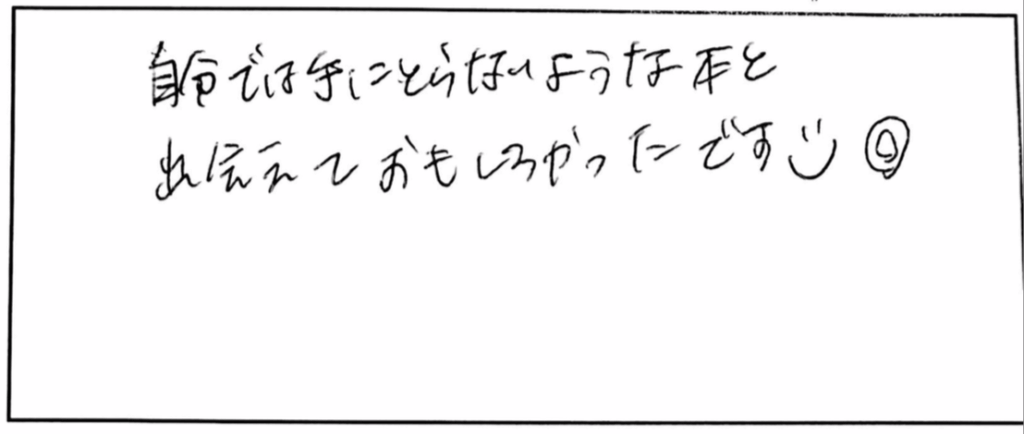 自分では手にとらないような本と
出会えて おもしろかったです ◎